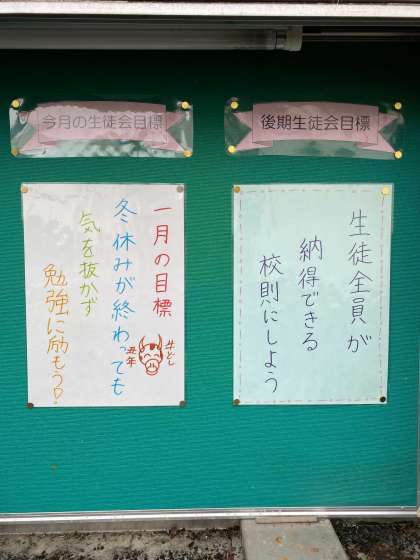 今月の生徒会目標
一月の目標
冬休みが終わっても
気を抜かず
勉強に励もう!
牛どし
丑年
後期生徒会目標
生徒全員が
納得できる
校則にしよう